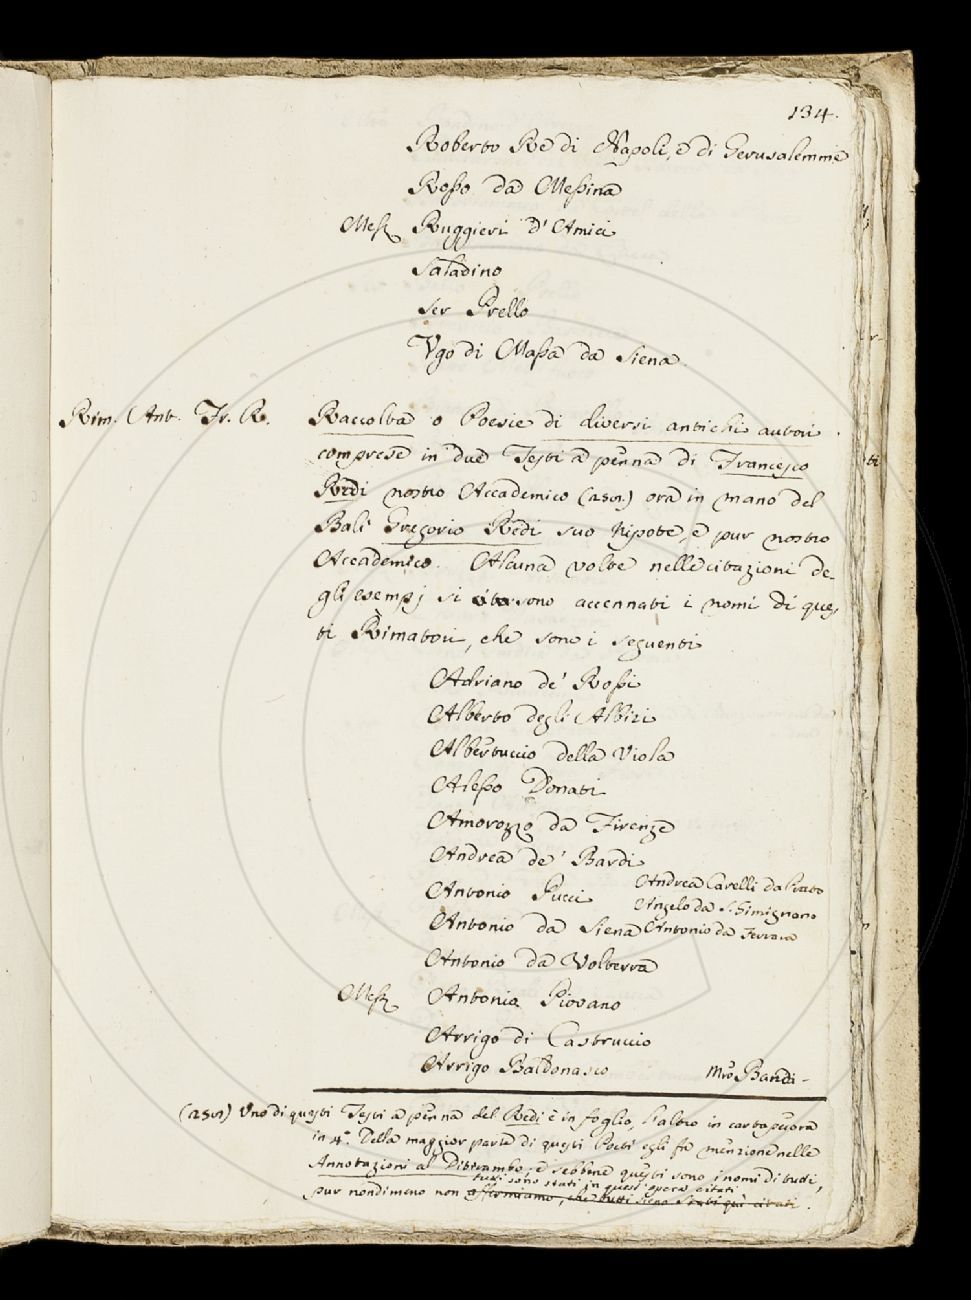 134.
Roberto Re di Napoli, e di Gerusalemme
Rosso da Messina
Mess. Ruggieri d'Amici
Saladino
ser Prello
Ugo di Massa da Siena.
Rim. Ant. Fr. R. Raccolta o Poesie di diversi antichi autori
comprese in due Testi a penna di Francesco
Redi nostro Accademico ora in mano del
Balì Gregorio Redi suo Nipote, e pur nostro
Accademico. Alcuna volta nelle citazioni de-
gli esempj si sono accennati i nomi di ques-
ti Rimatori, che sono i seguenti
Adriano de' Rossi
Alberto degli Albizi
Albertuccio della Viola
Alesso Donati
Amorozzo da Firenze
Andrea de' Bardi
Antonio Pucci
Andrea Carelli da Prato
Angelo da S. Gimignano
Antonio da Siena Antonio da Ferrara
Antonio da Volterra
Mess. Antonio Piovano
Arrigo di Castruccio
Arrigo Baldonasco
Mro Bandi-
Uno di questi Testi a penna del Redi è in foglio, l'altro in cartapecora
in 4º. Della maggior parte di questi Poeti egli fa menzione nelle
Annotazioni al Ditirambo, e sebbene questi sono i nomi di tutti,
tutti sono stati in quest'opera citati
pur nondimeno non affermiamo, che tutti sieno stati qui citati.